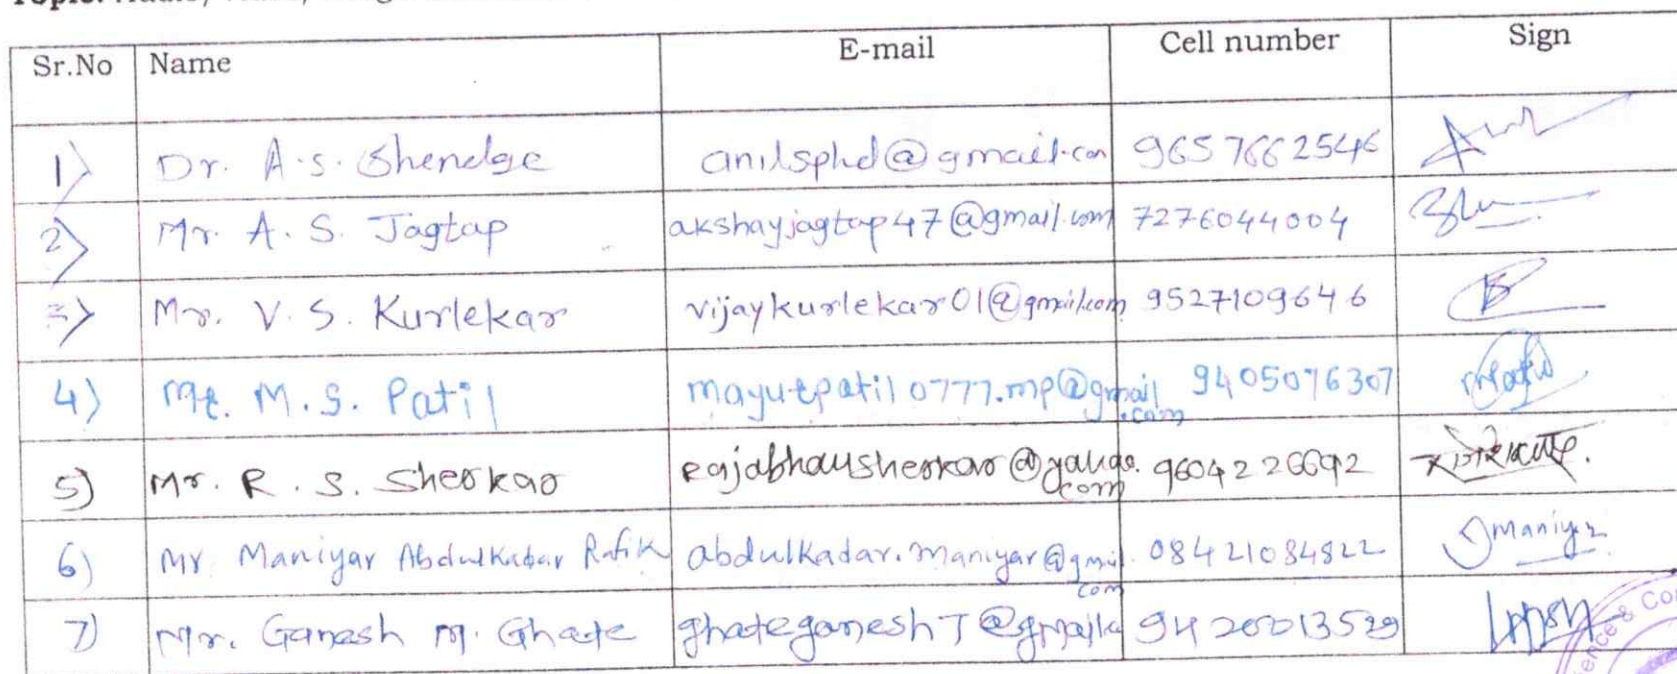 Sr.No Name E-mail Cell number Sign
1) Dr. A.S. Shendge anilsphd@gmail.com 9657662546
2) Mr. A. S. Jagtap akshayjagtap47@gmail.com 7276044004
3) Mr. V. S. Kurlekar vijaykurlekar01@gmail.com 9527109646
4) Mr. M. S. Patil mayurpatil0777.mp@gmail 9405076307
.com
5) Mr. R. S. Sherkar rajabhausherkar@yahoo. 9604226692
com
6) Mr Maniyar Abdulkadar Rafik abdulkadar.maniyar@gmail. 08421084822 Maniyar
com
7) Mr. Ganesh M. Ghate